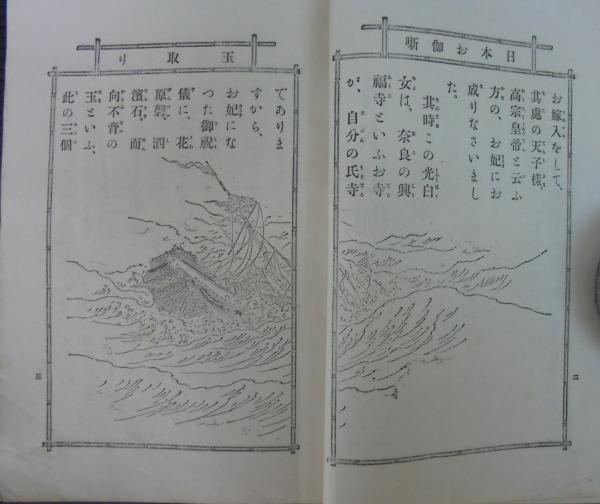 日本お伽噺
お嫁入をして、
其處の天子樣、
高宗皇帝と云ふ
方の、お妃にお
成りなさいまし
た。
其時この光白
女は、奈良の興
福寺といふお寺
が、自分の氏寺
二
玉取り
でありま
すから、
お妃にな
つた御祝
儀に、花
原磬、泗
濱石、面
向不背の
玉といふ、
此の三個
三